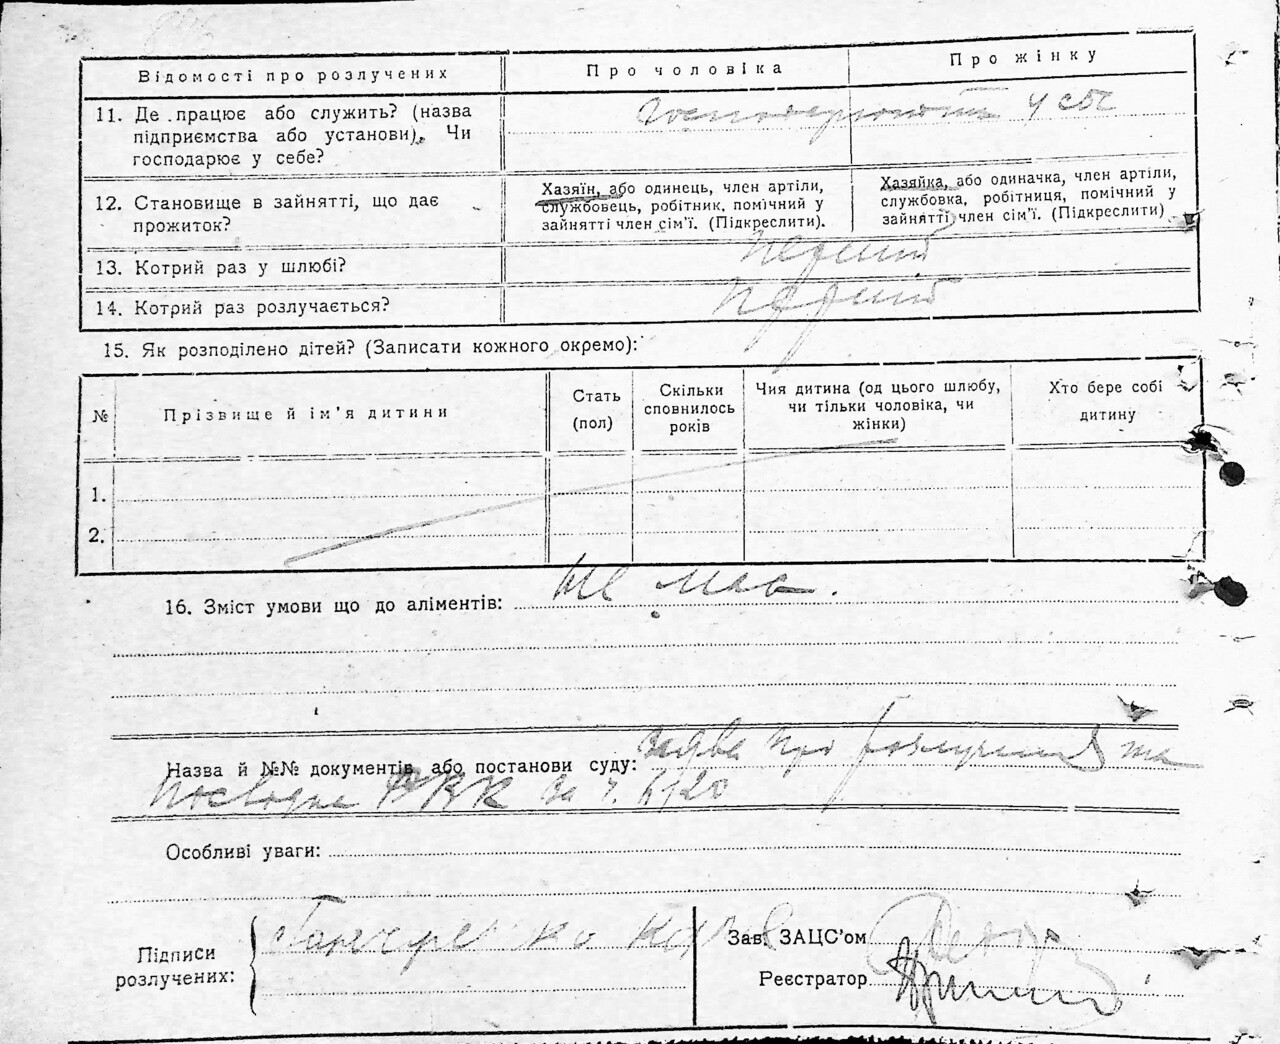 Відомості про розлучених
Про чоловіка
Про жінку
11. Де працює або служить? (назва
підприємства або установи). Чи
господарює у себе?
у себе
12. Становище в зайнятті, що дає
прожиток?
Хазяїн, або одинець, член артіли,
службовець, робітник, помічний у
зайнятті член сім'ї. (Підкреслити).
Хазяйка, або одиначка, член артіли,
службовка, робітниця, помічний у
зайнятті член сім'ї. (Підкреслити)
13. Котрий раз у шлюбі?
перший
14. Котрий раз розлучається?
перший
15. Як розподілено дітей? (Записати кожного окремо):
№
Прізвище й ім'я дитини
Стать
(пол)
Скільки
сповнилось
років
Чия дитина (од цього шлюбу,
чи тільки чоловіка, чи
жінки)
Хто бере собі
дитину
1.
2.
16. Зміст умови що до аліментів: не має.
Назва й №№ документів або постанови суду: заява про розлучення та
РВК за ч.
Особливі уваги:
Підписи
розлучених:
Гончаренко
Зав. ЗАЦС'ом
Реєстратор